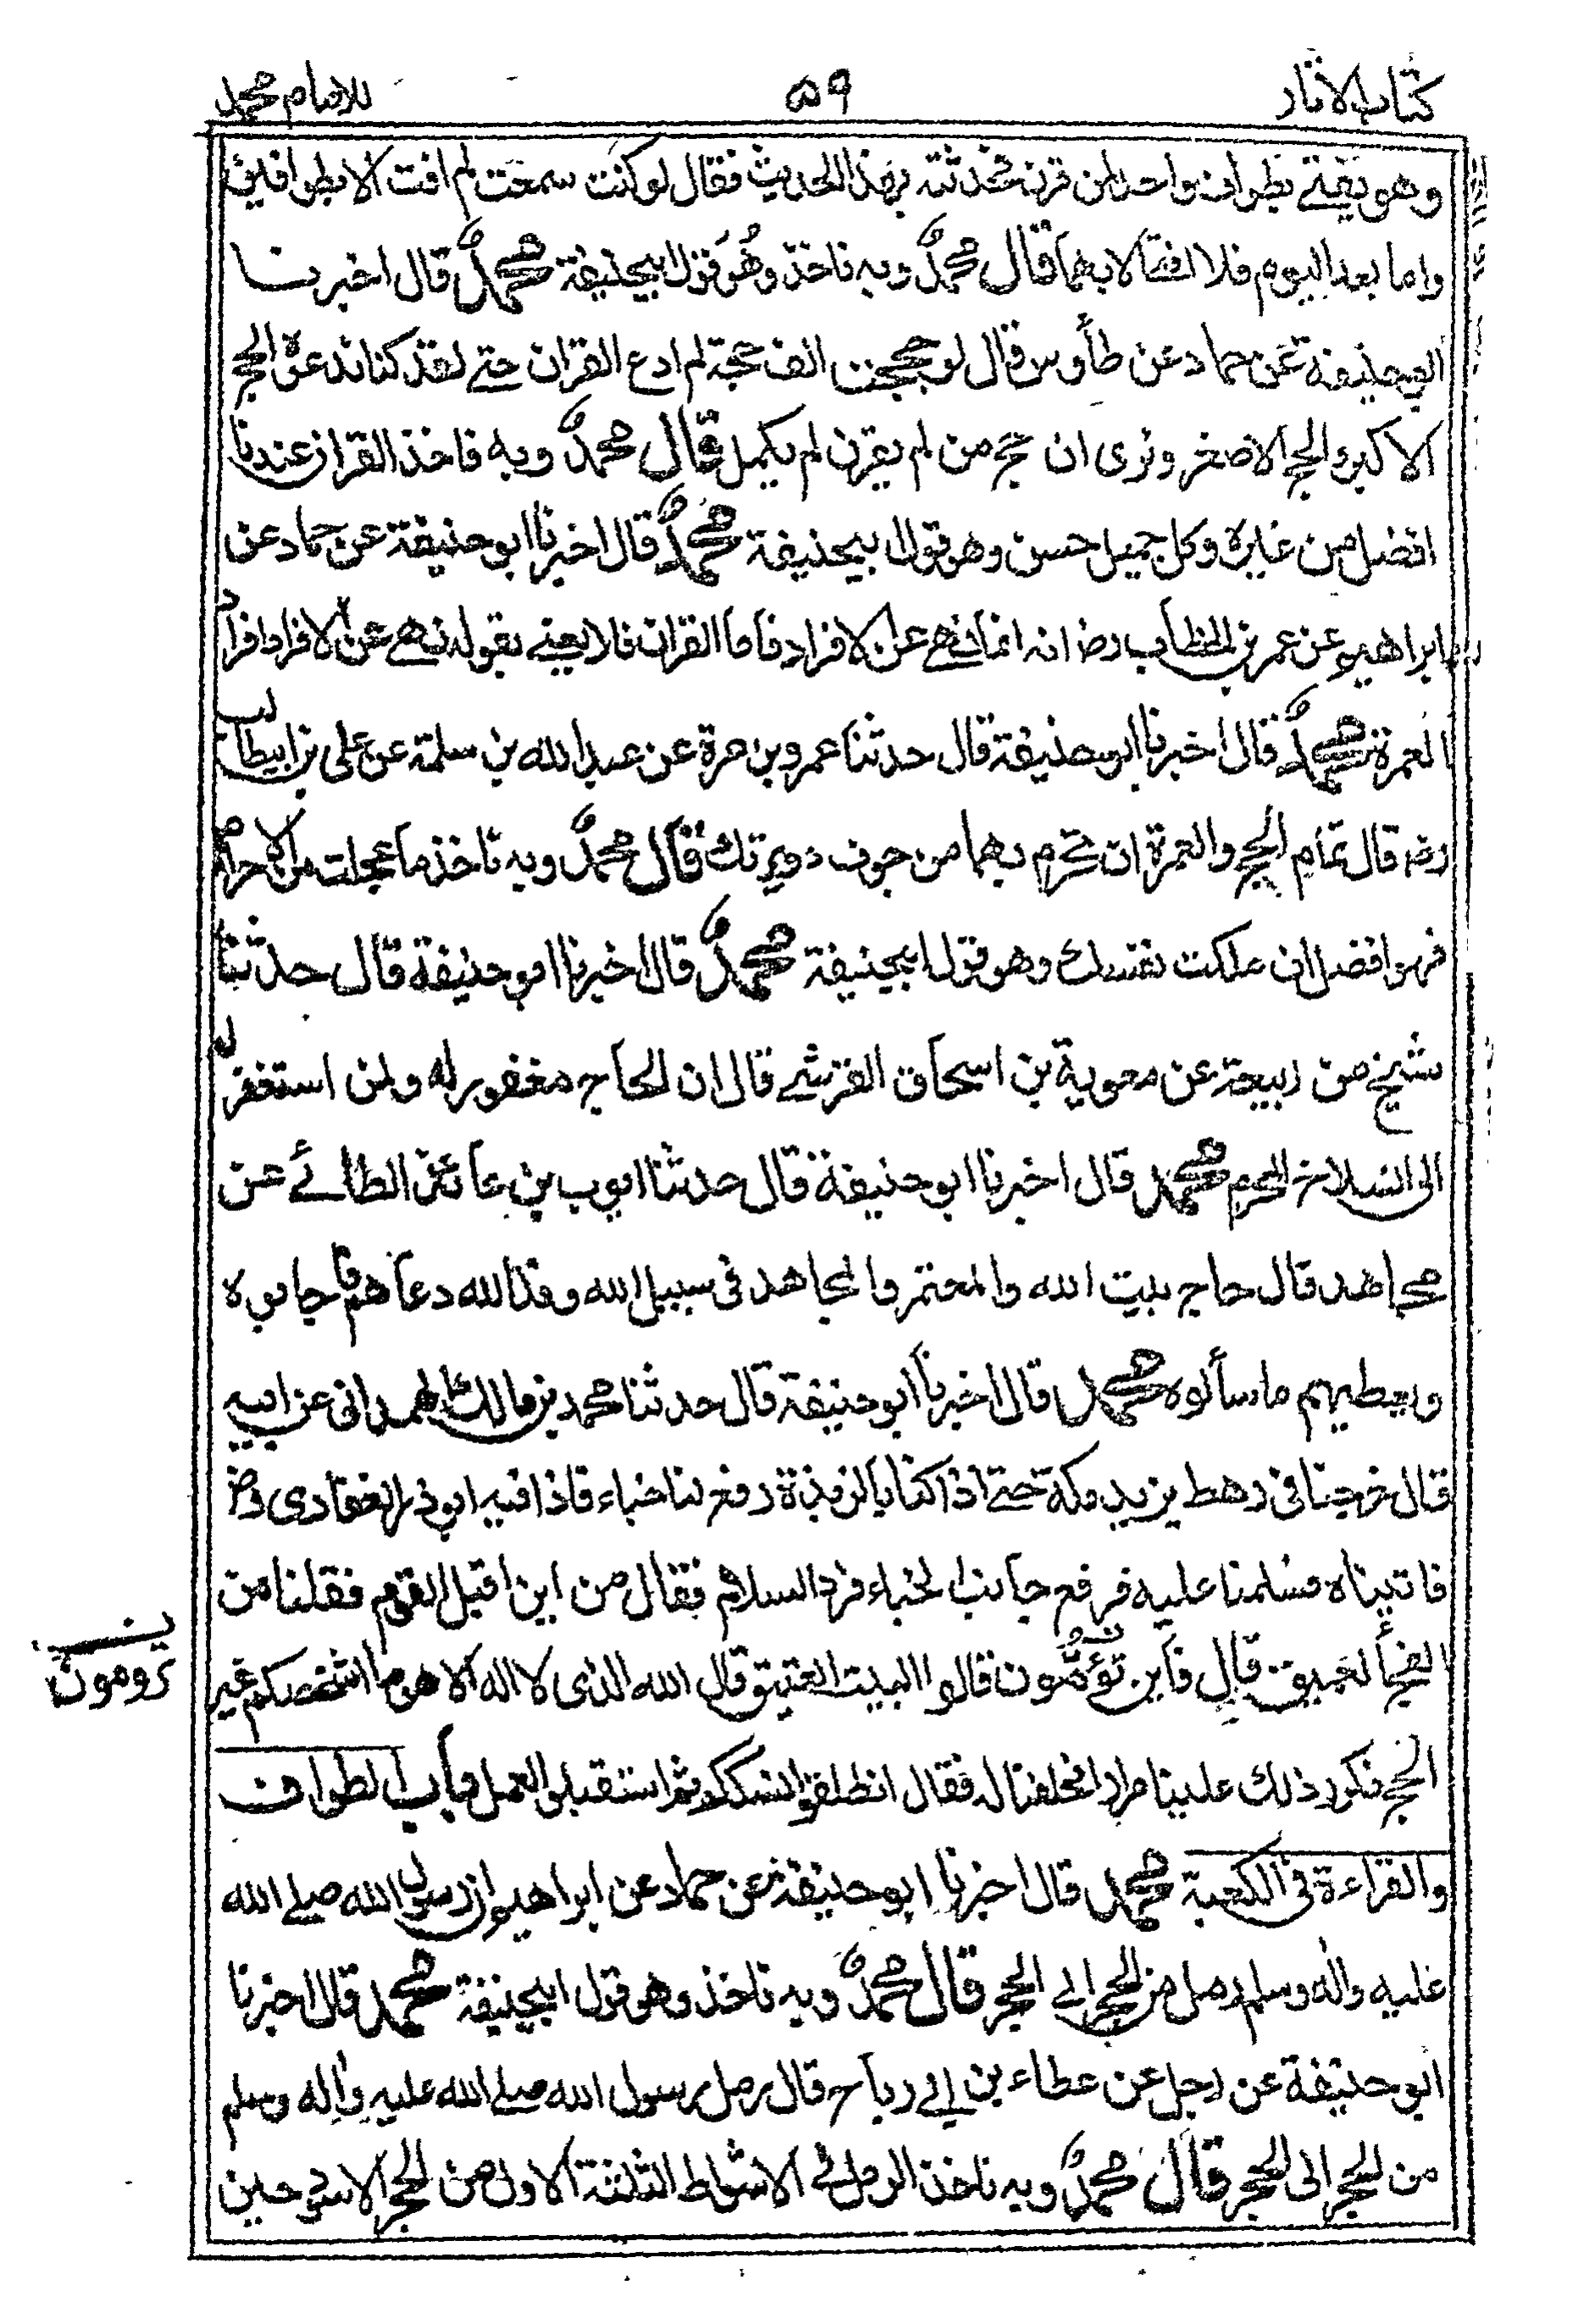 كتاب الآثار
٥٩
للامام محمد
وهو يفتي بطواف واحد لمن قرن فحدثته بهذا الحديث فقال لو كنت سمعت لم افت الا بطوافين
واما بعد اليوم فلا افتي الا بهما قال محمدٌ وبه ناخذ وهُوَ قول ابيحنيفة محمدٌ قال اخبرنا
ابو حنيفة عن حماد عن طاؤس قال لو حججت الف حجة لم ادع القران حتى لقد كنا ندعوه الحج
الاكبر والحج الاصغر ونرى ان حج من لم يقرن لم يكمل قال محمدٌ وبه ناخذ القران عندنا
افضل من غيره وكل جميل حسن وهو قول ابيحنيفة محمدٌ قال اخبرنا ابو حنيفة عن حماد عن
ابراهيم عن عمر بن الخطاب رض انه انما نهى عن الافراد فاما القران فلا يعني بقوله نهى عن الافراد افراد
العمرة محمدٌ قال اخبرنا ابو حنيفة قال حدثنا عمرو بن مرة عن عبد الله بن سلمة عن على بن ابيطالب
رض قال تمام الحج والعمرة ان تحرم بهما من جوف دويرتك قال محمدٌ وبه ناخذ ما عجلت من الاحرام
فهو افضل ان ملكت نفسك وهو قول ابيحنيفة محمدٌ قال اخبرنا ابو حنيفة قال حدثنا
شيخ من ربيعة عن معوية بن اسحاق القرشي قال ان الحاج مغفور له ولمن استغفر له
الى انسلاخ المحرم محمد قال اخبرنا ابو حنيفة قال حدثنا ايوب بن عائذ الطائي عن
مجاهد قال حاج بيت الله والمعتمر والمجاهد فى سبيل الله وفد الله دعاهم فاجابوه
ويعطيهم ما سألوه محمد قال اخبرنا ابو حنيفة قال حدثنا محمد بن مالك الهمدانى عن ابيه
قال خرجنا فى رهط نريد مكة حتى اذا كنا بالربذة رفع لنا خباء فاذا فيه ابو ذر الغفارى رض
فاتيناه فسلمنا عليه فرفع جانب الخباء فرد السلام فقال من اين اقبل القوم فقلنا من
الفج العميق قال فاين تؤمّون قالوا البيت العتيق قال الله الذى لا اله الا هو ما اشخصكم غير
ترومون
الحج فكرر ذلك علينا مرارا فحلفنا له فقال انطلقوا نسككم ثم استقبلوا العمل باب الطواف
والقراءة فى الكعبة محمد قال اخبرنا ابو حنيفة عن حماد عن ابراهيم ان رسول الله صلى الله
عليه واٰله وسلم رمل من الحجر الى الحجر قال محمدٌ وبه ناخذ وهو قول ابيحنيفة محمد قال اخبرنا
ابو حنيفة عن رجل عن عطاء بن ابى رباح قال رمل رسول الله صلى الله عليه واٰله وسلم
من الحجر الى الحجر قال محمدٌ وبه ناخذ الرمل فى الاشواط الثلثة الاول من الحجر الاسود حين